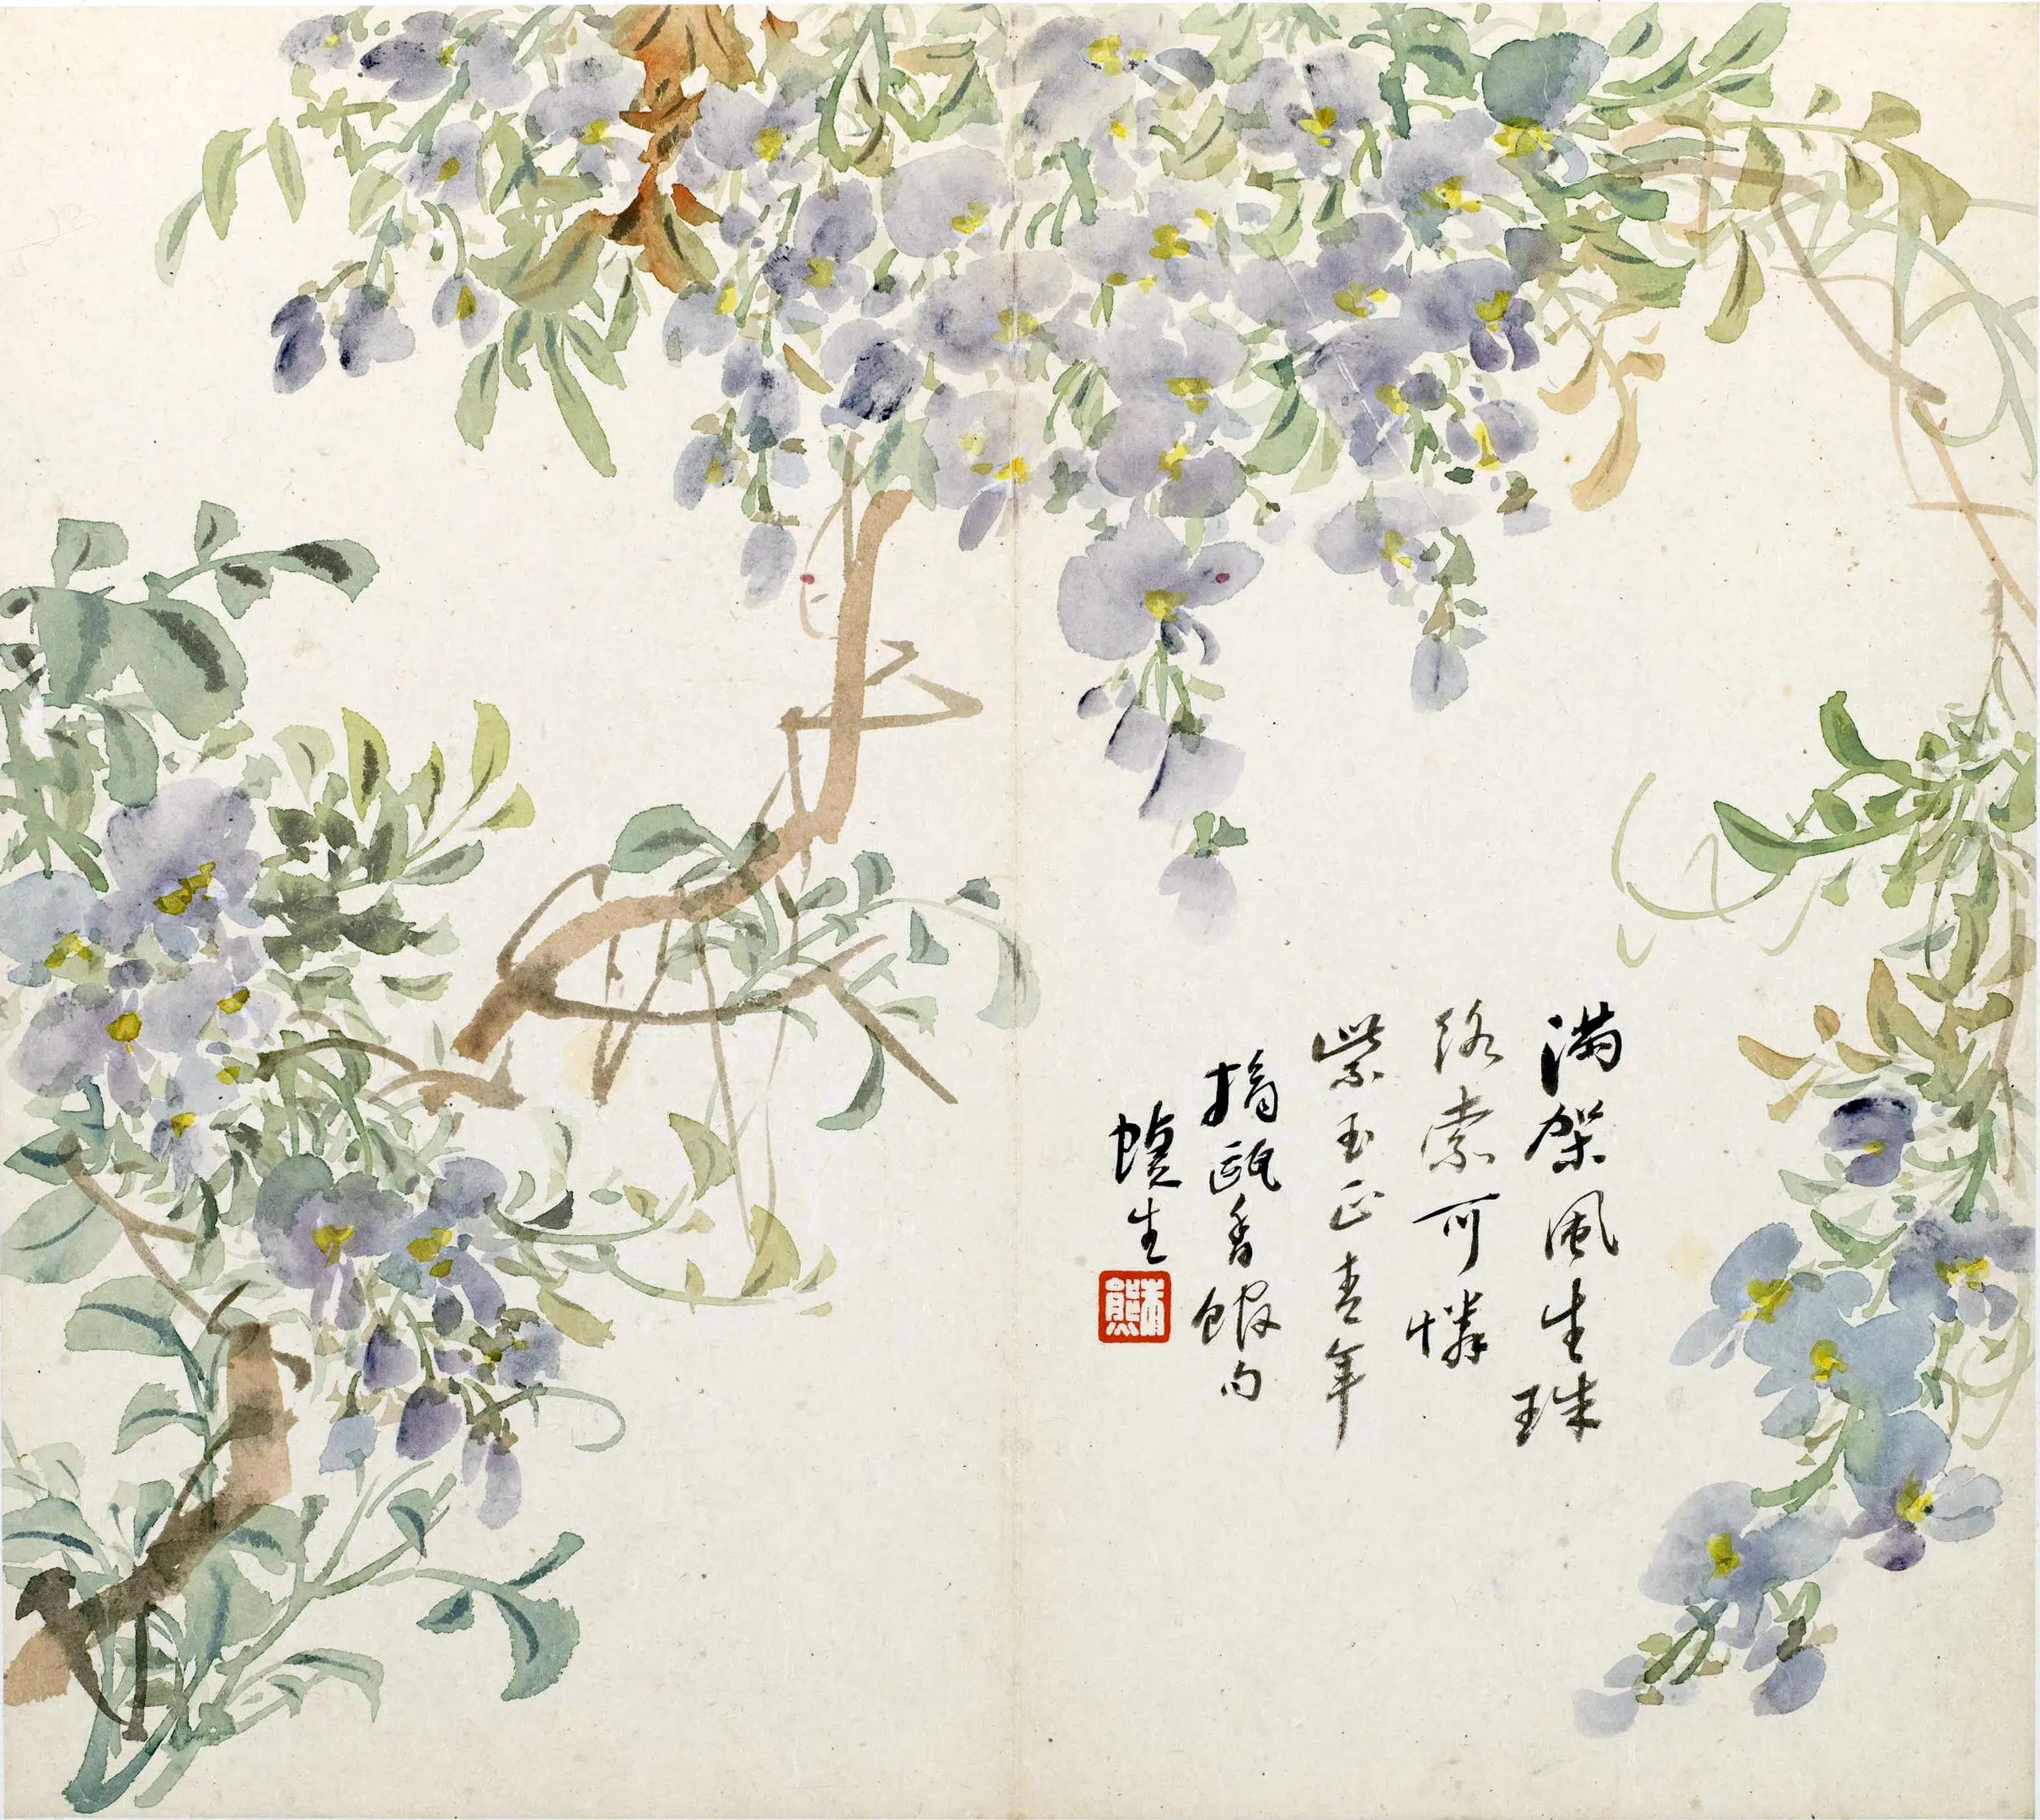 滿架風生珠
絡索可憐
紫玉正青年
摘甌香館句
蝶生
朱熊